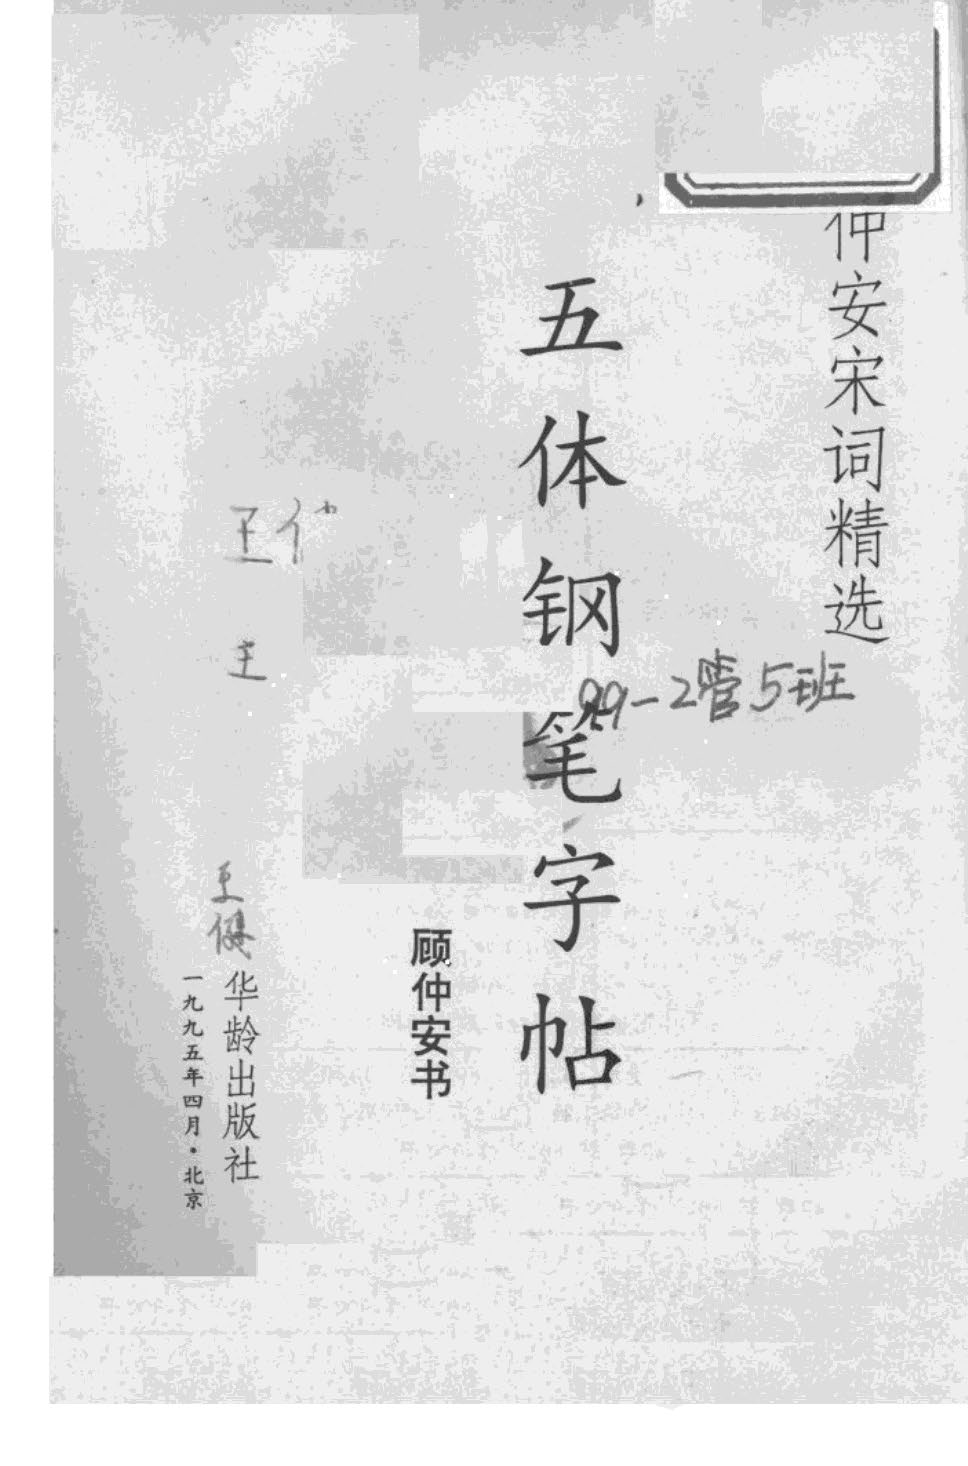 仲安宋词精选
五体钢笔字帖
99-2管5班
顾仲安书
王
王
王健
华龄出版社
一九九五年四月·北京